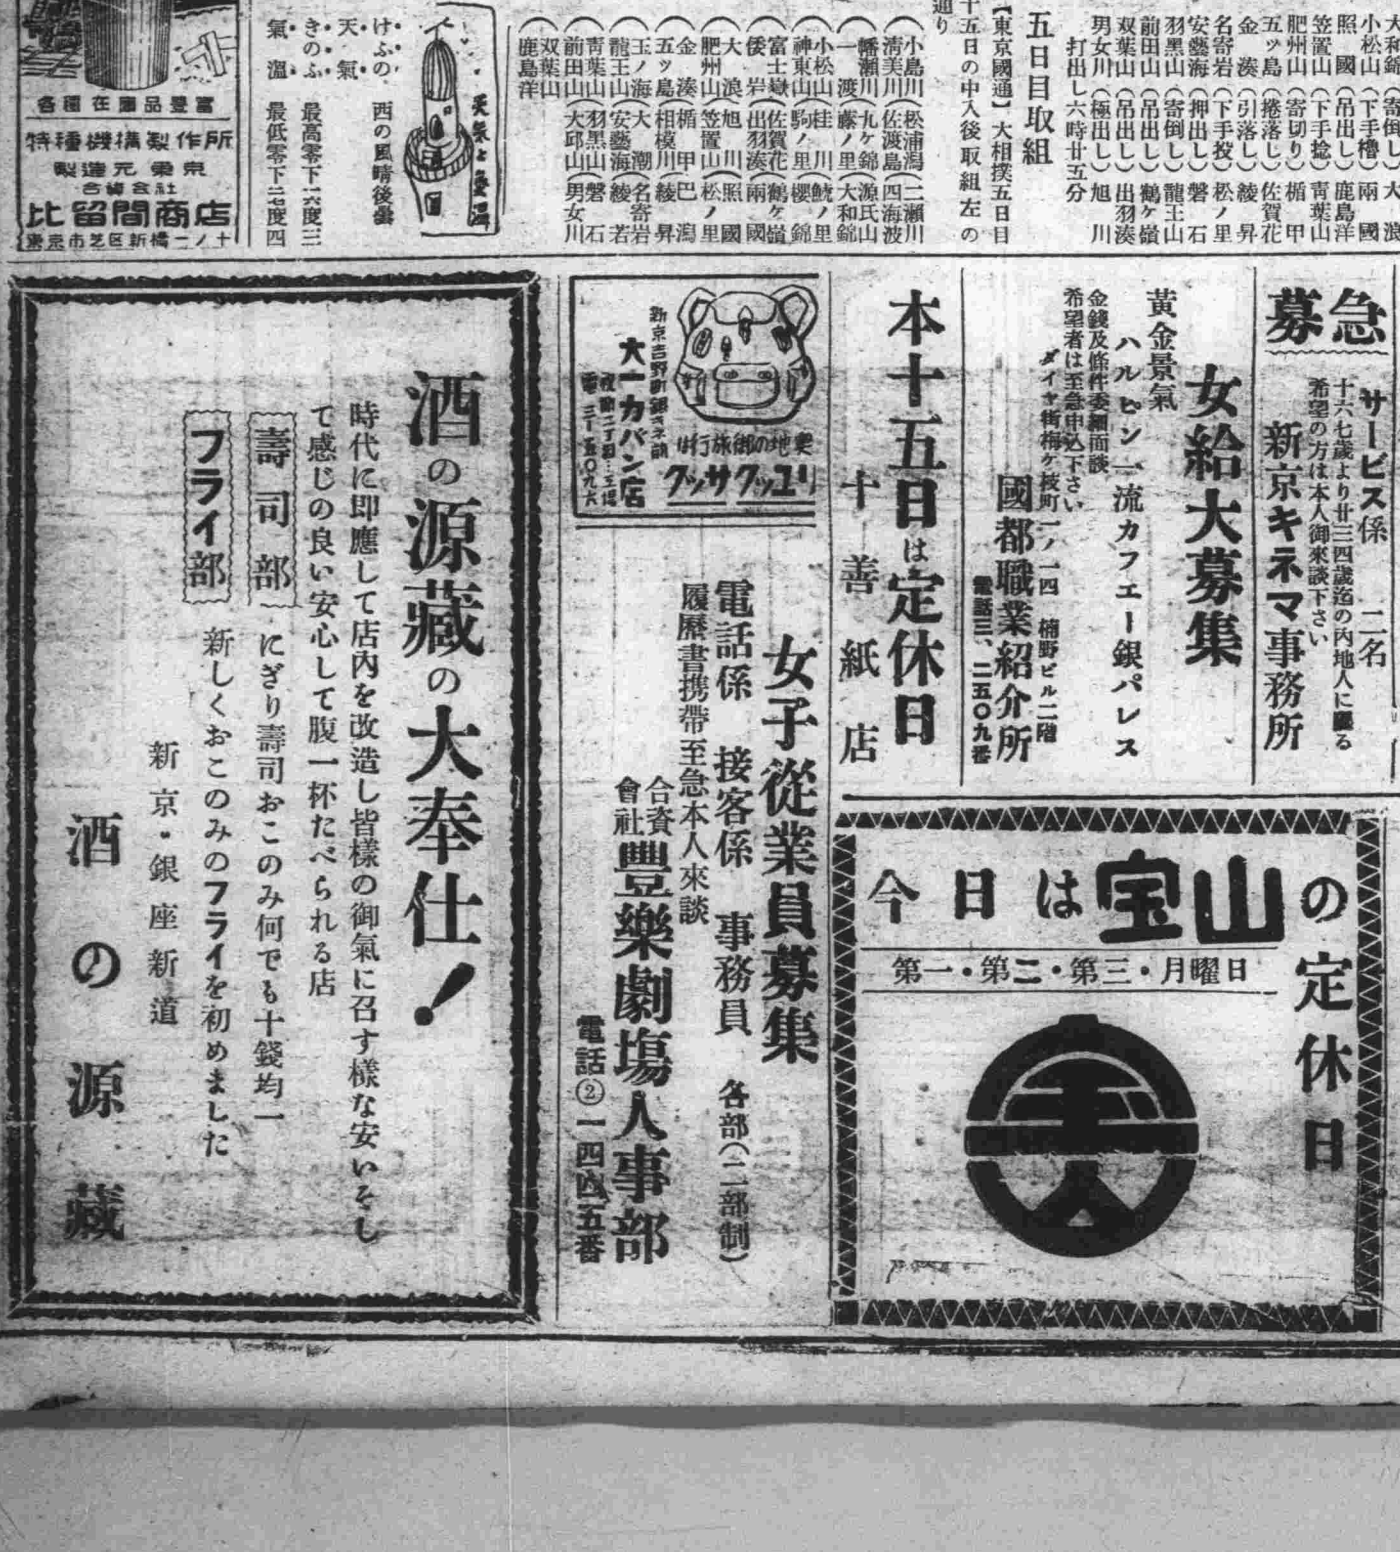 小松山(下手櫓)兩國
照國(吊出し)鹿島洋
笠置山(下手捻)靑葉山
肥州山(寄切り)楯甲
五ッ島(捲落し)佐賀花
金湊(引落し)綾昇
名寄岩(下手投)松ノ里
安藝海(押出し)磐石
羽黑山(寄倒し)龍王山
前田山(吊出し)鶴ヶ嶺
双葉山(吊出し)出羽湊
男女川(極出し)旭川
打出し六時廿五分
五日目取組
【東京國通】大相撲五日目
十五日の中入後取組左の
通り
小島川(松浦潟)二瀬川
淸美川(佐渡島)四海波
幡瀬川(九ヶ錦)源氏山
一渡(藤ノ里)大和錦
小松山(桂川)鯱ノ里
神東山(駒ノ里)櫻錦
富士嶽(佐賀花)鶴ヶ嶺
倭岩(出羽湊)兩國
大浪(旭川)照國
肥州山(笠置山)松ノ里
金湊(楯甲)巴潟
五ッ島(相模川)綾昇
玉ノ海(大潮)名寄岩
龍王山(安藝海)綾若
靑葉山(羽黑山)磐石
前田山(大邱山)男女川
双葉山
鹿島洋
天氣と氣溫
けふの天氣 西の風晴後曇
きのふ 最高零下一六度三
氣溫 最低零下二七度四
各種在庫品豊富
特種機構製作所
製造元東京
合資会社
比留間商店
東京市芝区新橋二ノ十
急募
サービス係 二名
十六七歲より廿三四歲迄の內地人に限る
希望の方は本人御來談下さい
新京キネマ事務所
女給大募集
黃金景氣
ハルピン一流カフエー銀パレス
金錢及條件委細面談
希望者は至急申込下さい
ダイヤ街梅ヶ枝町一ノ一四 楠野ビル二階
國都職業紹介所
電話三、二五〇九番
本十五日は定休日
十善紙店
奥地の御旅行は
リユックサック
新京吉野町銀キネ前
大一カバン店
電三一五〇九六
女子從業員募集
電話係 接客係 事務員 各部(二部制)
履歷書携帶至急本人來談
合資會社豐樂劇塲人事部
電話②一四四五番
今日は宝山の定休日
第一・第二・第三・月曜日
酒の源藏の大奉仕!
時代に即應して店內を改造し皆樣の御氣に召す樣な安いそし
て感じの良い安心して腹一杯たべられる店
壽司部 にぎり壽司おこのみ何でも十錢均一
フライ部 新しくおこのみのフライを初めました
新京・銀座新道
酒の源藏